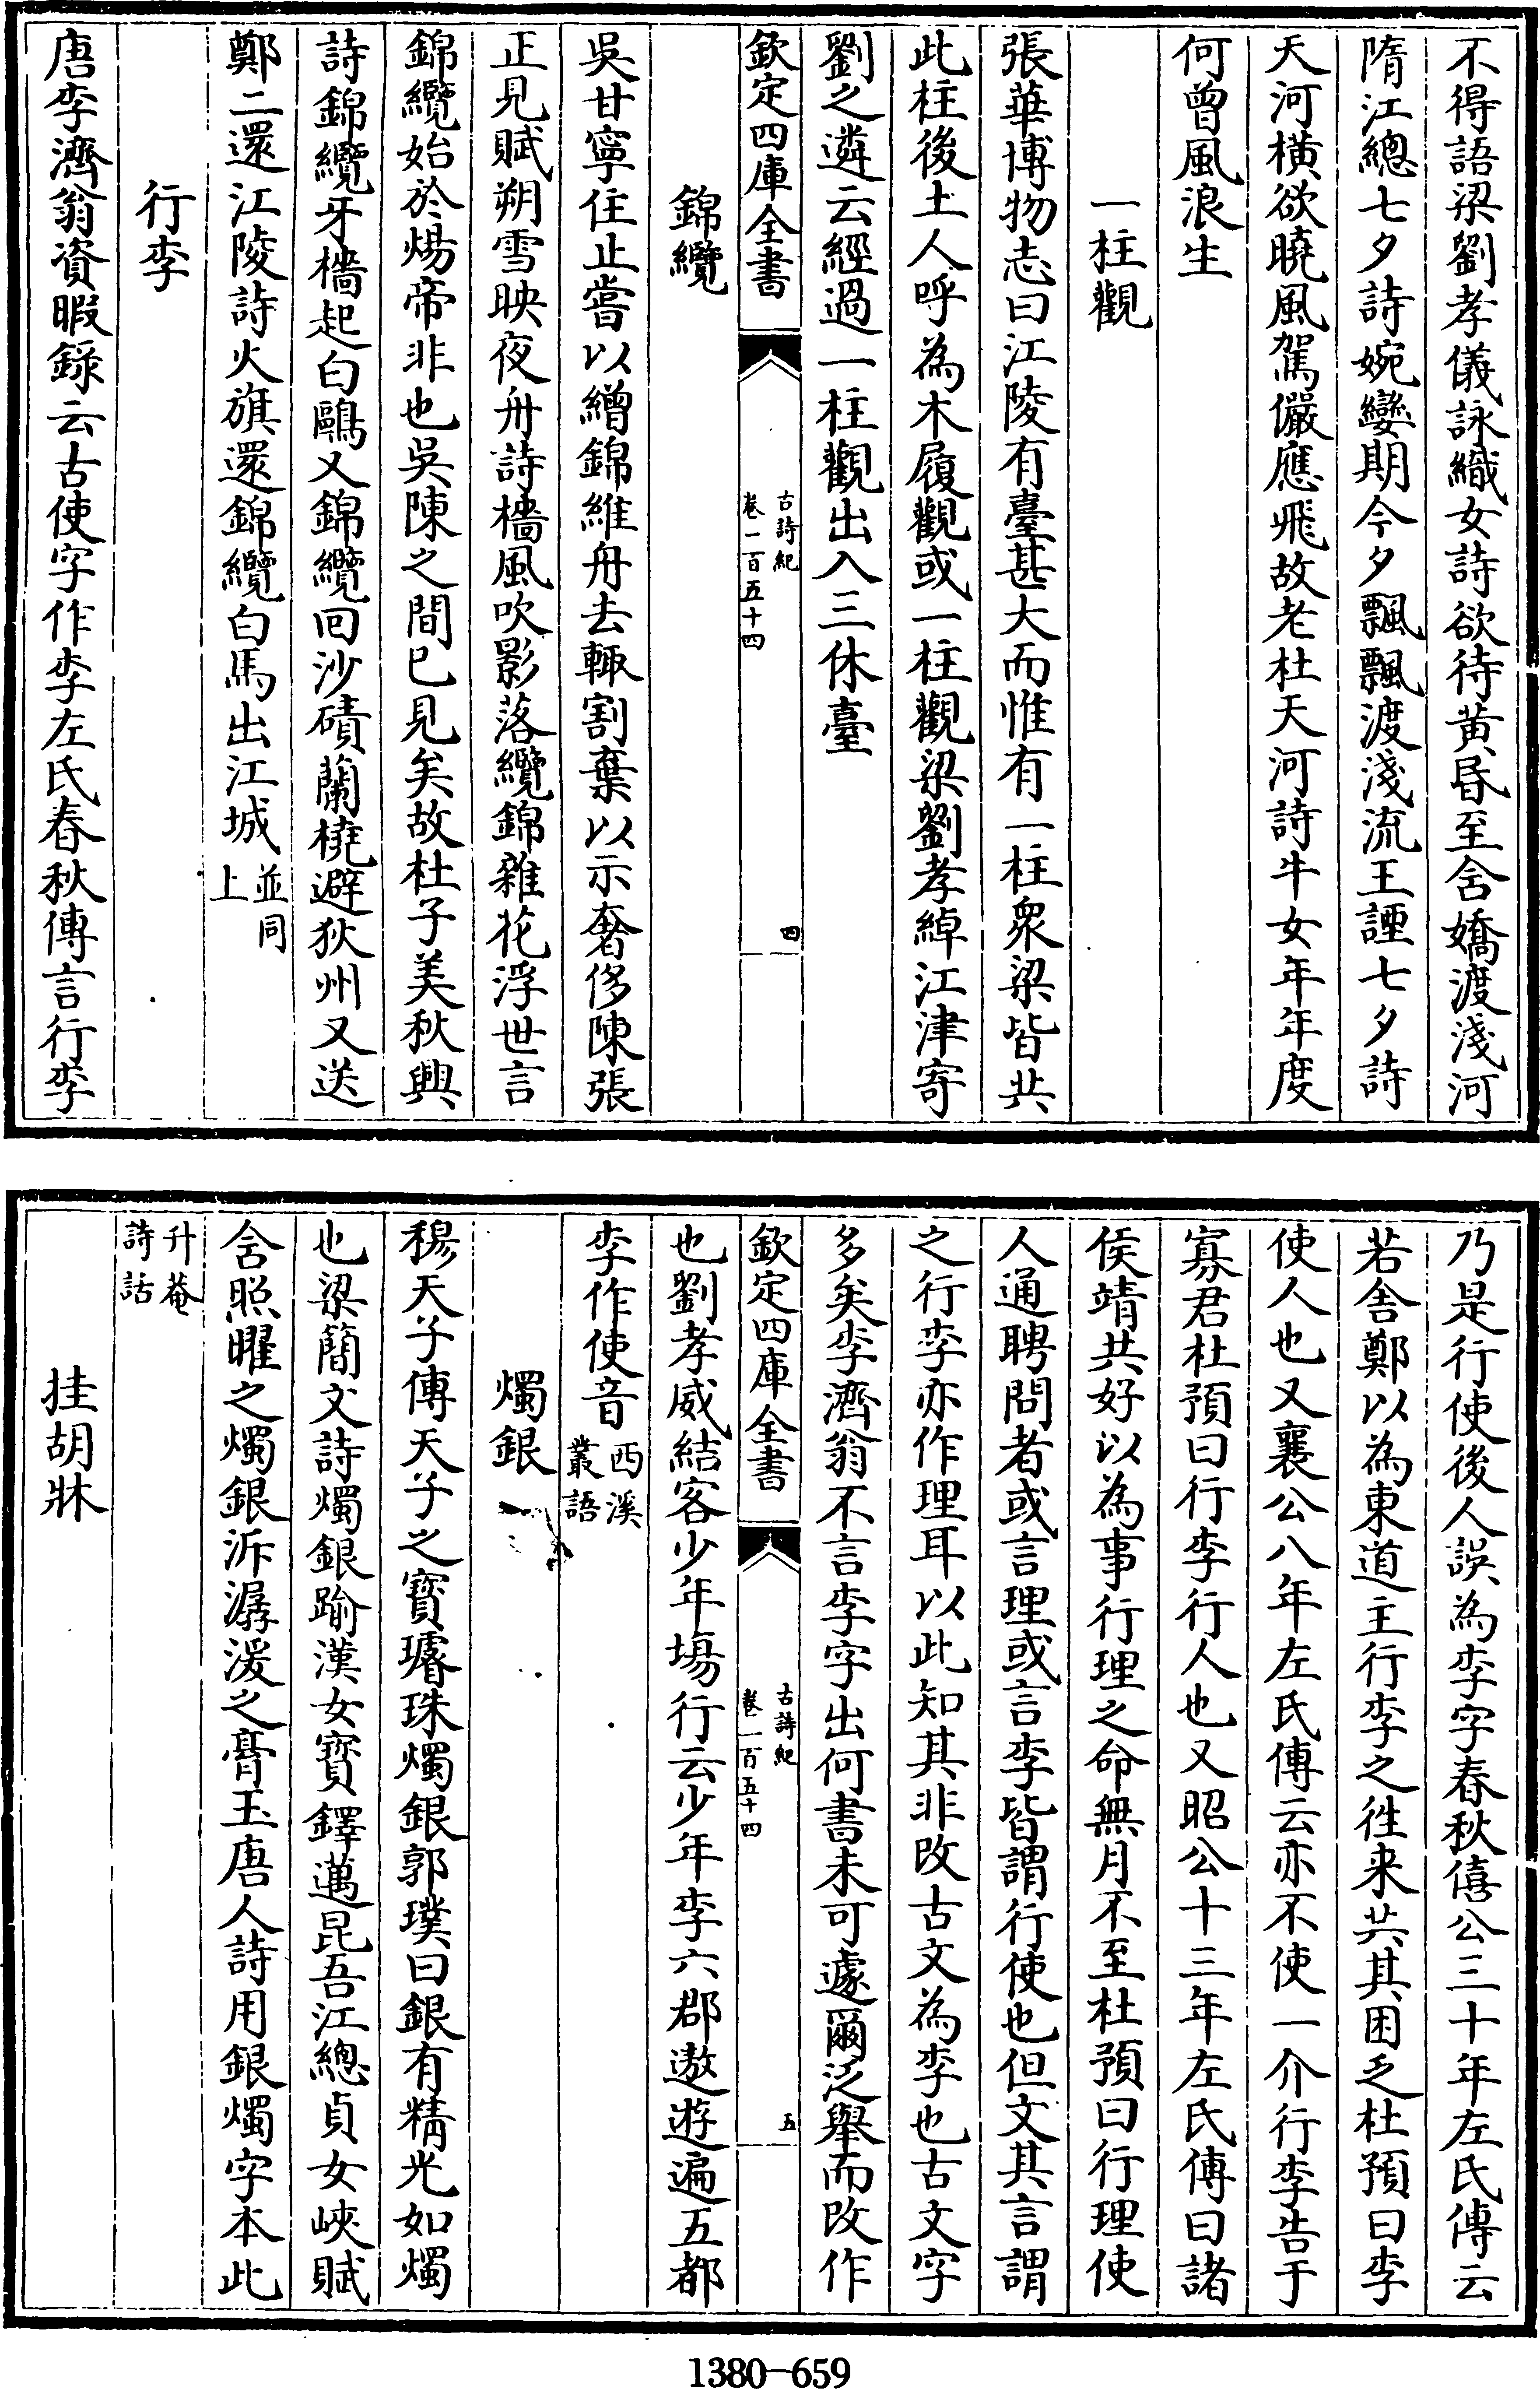 不得語梁劉孝儀詠織女詩欲待黄昏至含嬌渡淺河
隋江總七夕詩婉孌期今夕飄飄渡淺流王諲七夕詩
天河横欲曉風駕儼應飛故老杜天河詩牛女年年度
何曾風浪生
一柱觀
張華博物志曰江陵有臺甚大而惟有一柱衆梁皆共
此柱後土人呼為木履觀或一柱觀梁劉孝綽江津寄
劉之遴云經過一柱觀出入三休臺
欽定四庫全書
古詩紀
卷一百五十四
四
錦纜
吳甘寧住止嘗以繒錦維舟去輙割棄以示奢侈陳張
正見賦朔雪映夜舟詩檣風吹影落纜錦雜花浮世言
錦纜始於煬帝非也吳陳之間已見矣故杜子美秋興
詩錦纜牙檣起白鷗又錦纜回沙磧蘭橈避狄州又送
鄭二還江陵詩火旗還錦纜白馬出江城並同上
行李
唐李濟翁資暇録云古使字作李左氏春秋傳言行李
乃是行使後人誤為李字春秋僖公三十年左氏傳云
若舍鄭以為東道主行李之徃来共其困乏杜預曰李
使人也又襄公八年左氏傳云亦不使一介行李告于
寡君杜預曰行李行人也又昭公十三年左氏傳曰諸
侯靖共好以為事行理之命無月不至杜預曰行理使
人通聘問者或言理或言李皆謂行使也但文其言謂
之行李亦作理耳以此知其非改古文為李也古文字
多矣李濟翁不言李字出何書未可遽爾泛舉而改作
欽定四庫全書
古詩紀
卷一百五十四
五
也劉孝威結客少年場行云少年李六郡遨遊遍五都
李作使音西溪叢語
燭銀
穆天子傳天子之寳璿珠燭銀郭璞曰銀有精光如燭
也梁簡文詩燭銀踰漢女寳鐸邁昆吾江總貞女峽賦
含照曜之燭銀泝潺湲之膏玉唐人詩用銀燭字本此
升菴詩話
挂胡牀
1380-659